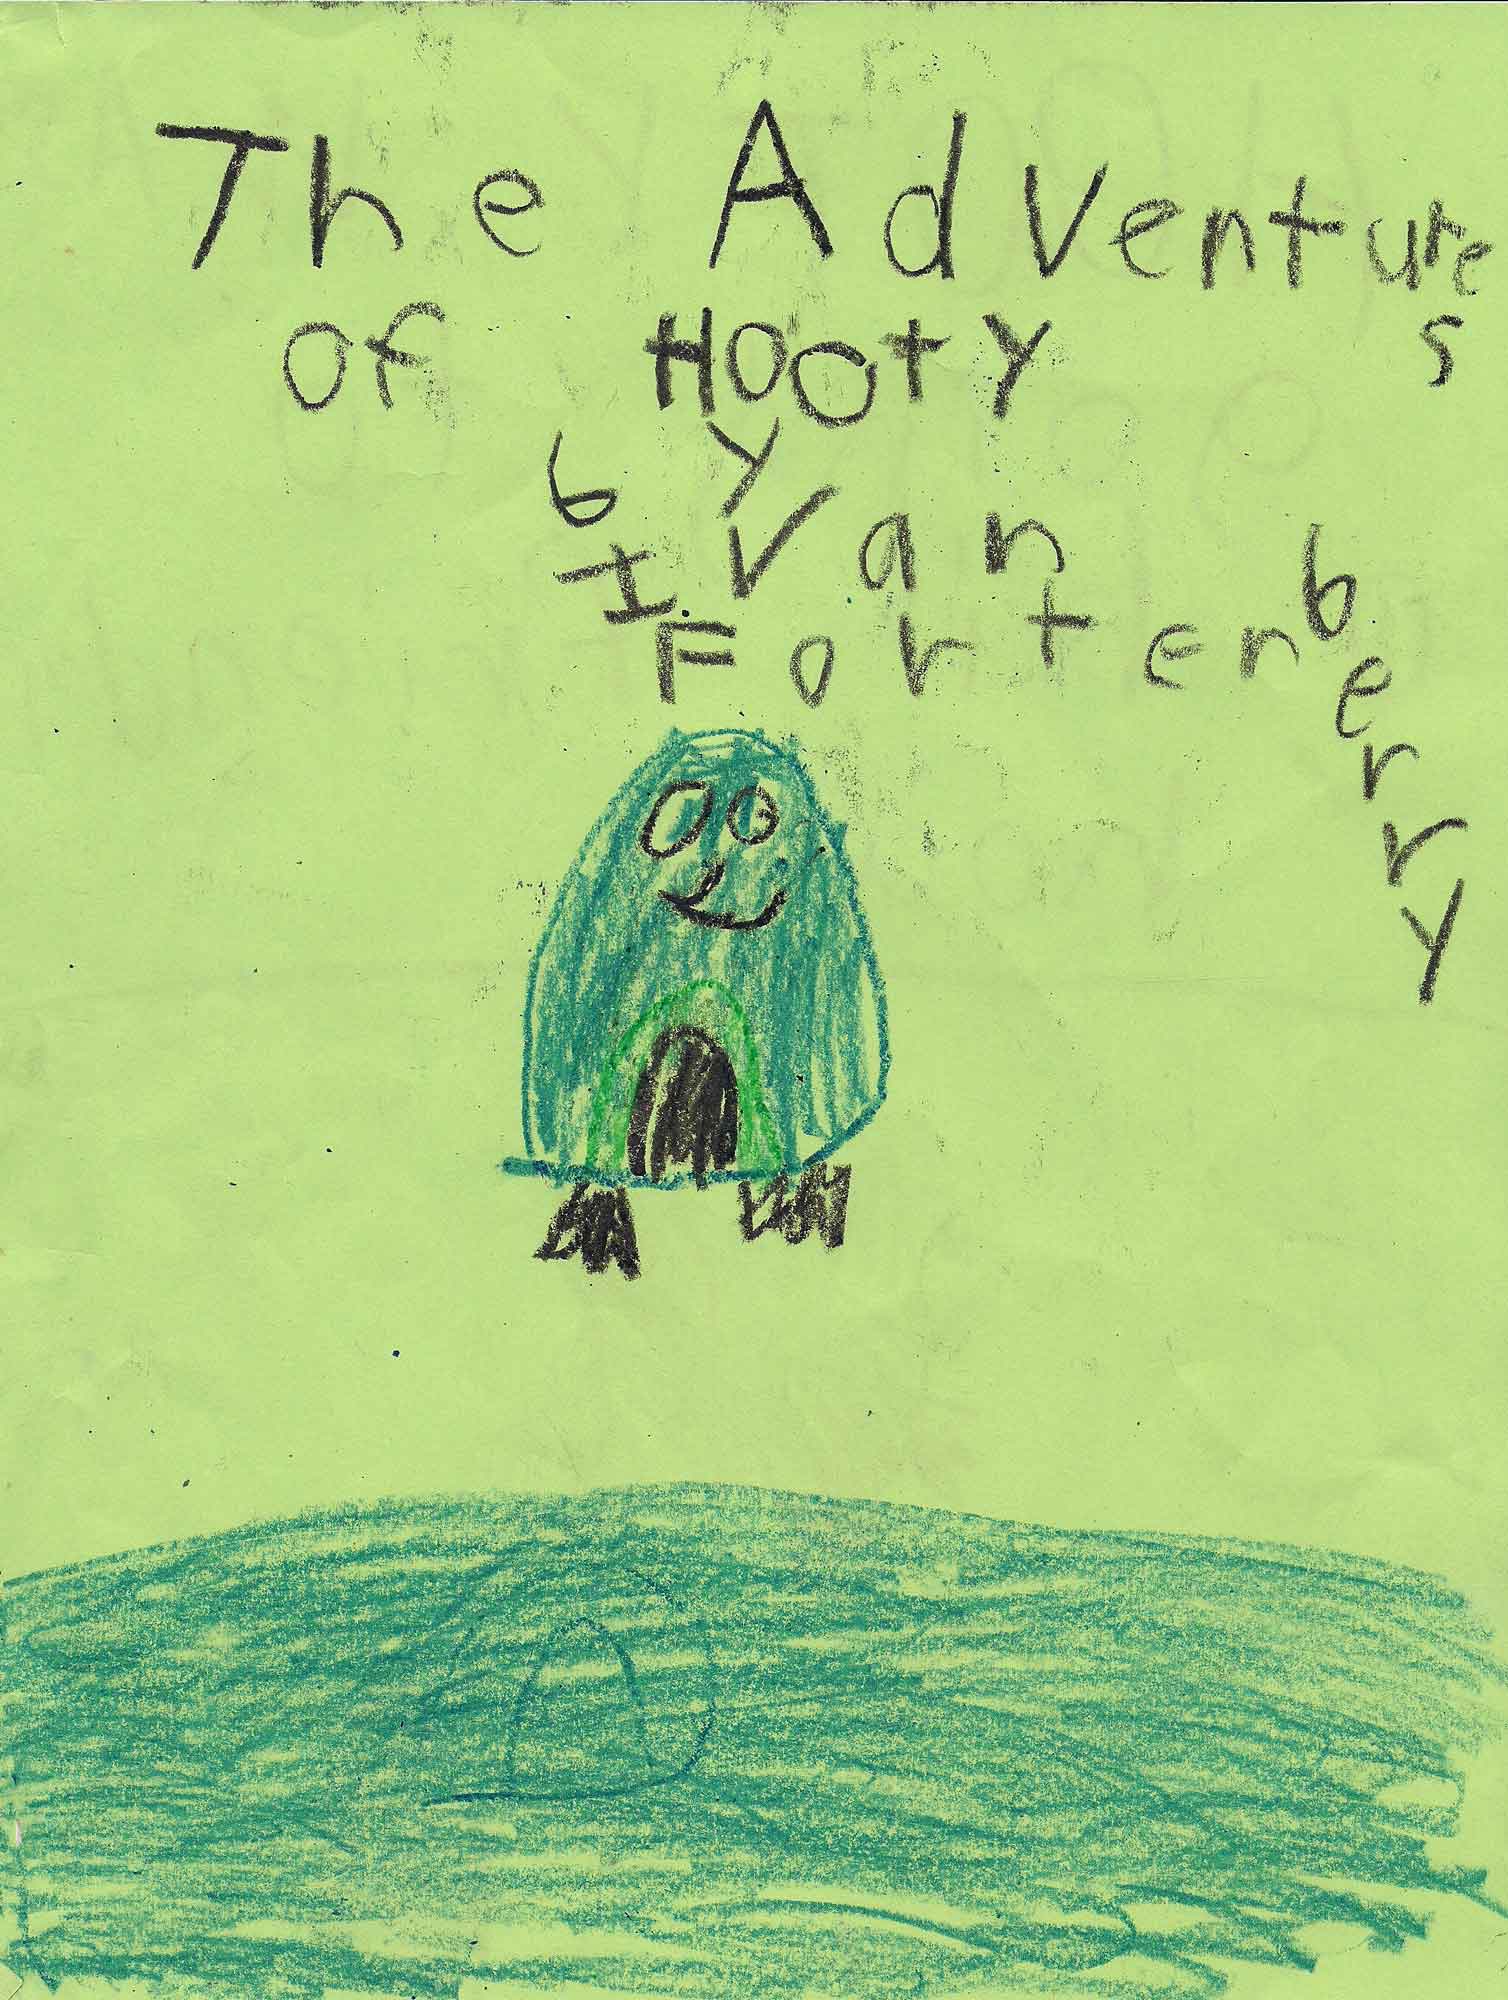 The Adventures
of HOOTY
by
IVan
Fortenberry